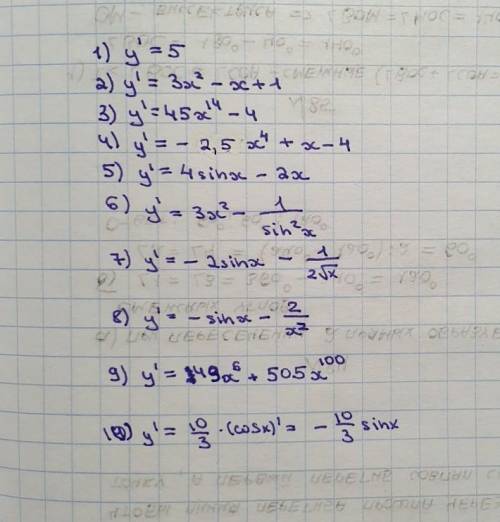 1) y' = 5
2) y' = 3x² - x + 1
3) y' = 45x¹⁴ - 4
4) y' = - 2,5 x⁴ + x - 4
5) y' = 4sinx - 2x
6) y' = 3x² - 1/sin²x
7) y' = - 2sinx - 1/2√x
8) y' = - sinx - 2/x²
9) y' = 49x⁶ + 505x¹⁰⁰
10) y' = 10/3 · (cosx)' = - 10/3 sinx